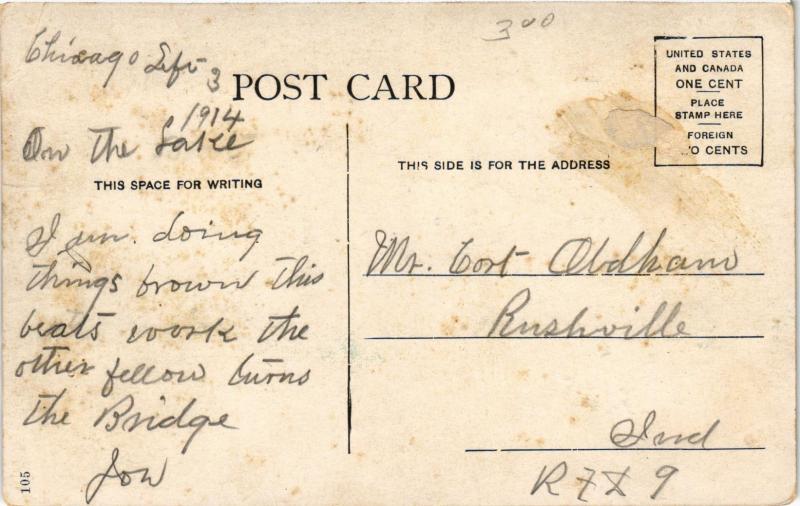 3 00
Chicago Sept 3
1914
On the Lake
POST CARD
UNITED STATES
AND CANADA
ONE CENT
PLACE
STAMP HERE
FOREIGN
O CENTS
THIS SPACE FOR WRITING
THIS SIDE IS FOR THE ADDRESS
I am doing
things brown this
beats work the
other fellow turns
the Bridge
Mr. Cort Oldham
Rushville
Ind
R F D 9
105